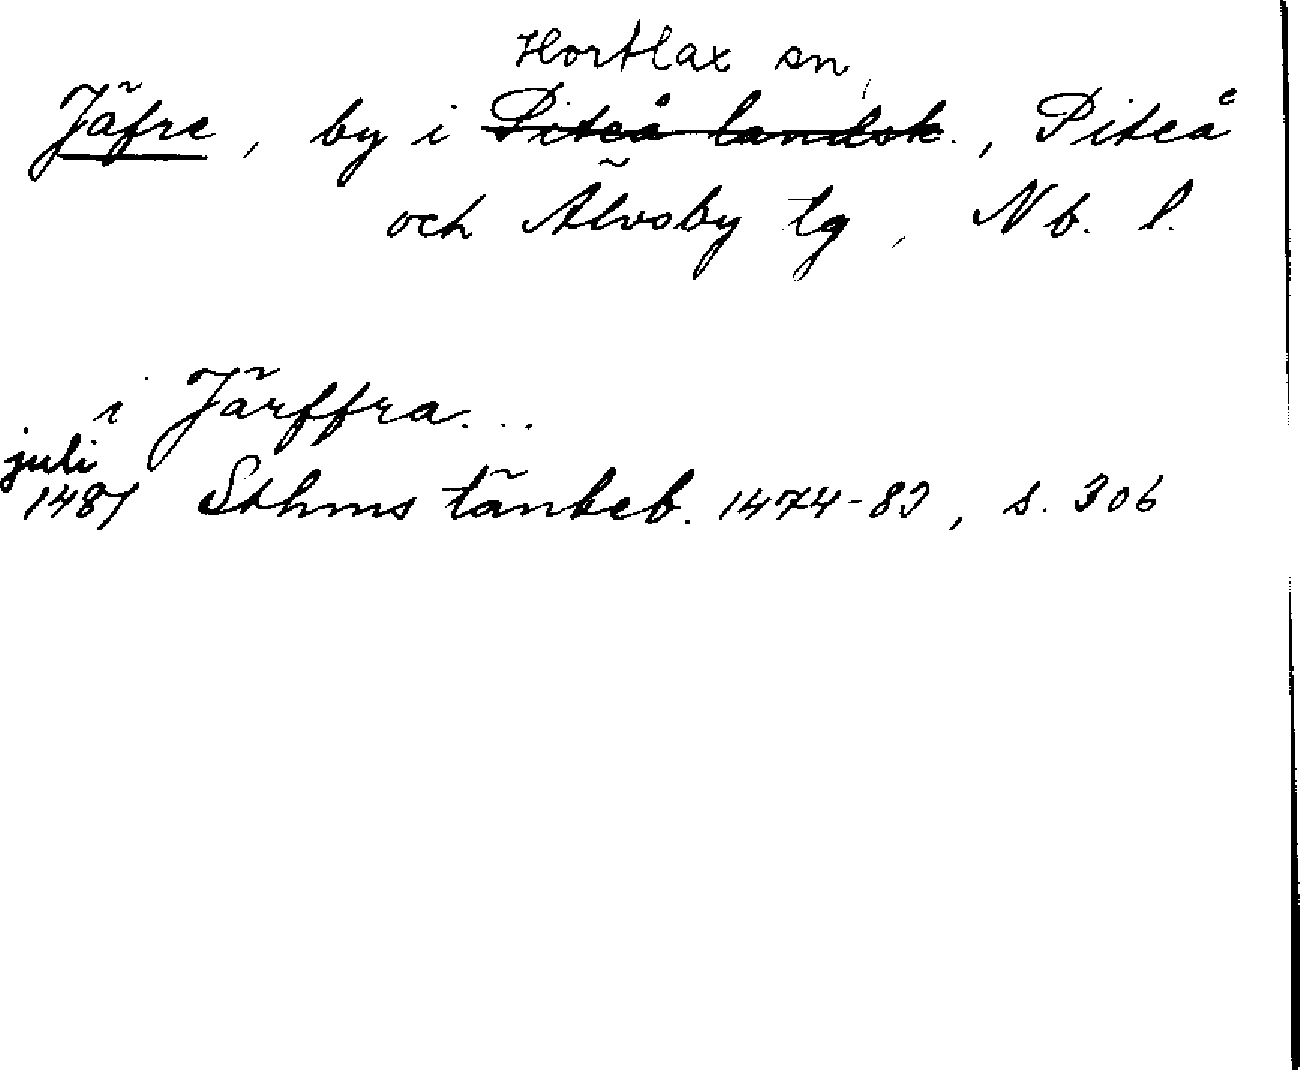 Hortlax sn,
Jäfre, by i Piteå landsk., Piteå
och Älvsby tg, Nb. l.
i Järffra...
juli
1481 Sthms tänkeb. 1474-83, s. 306